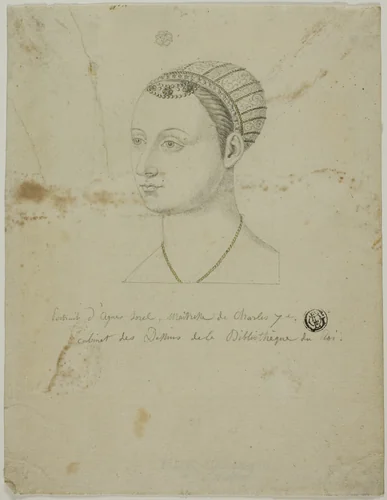 Portrait d'Agnes Sorel, Maitresse de Charles 7e,
Cabinet des Dessins de la Bibliothèque du roi.